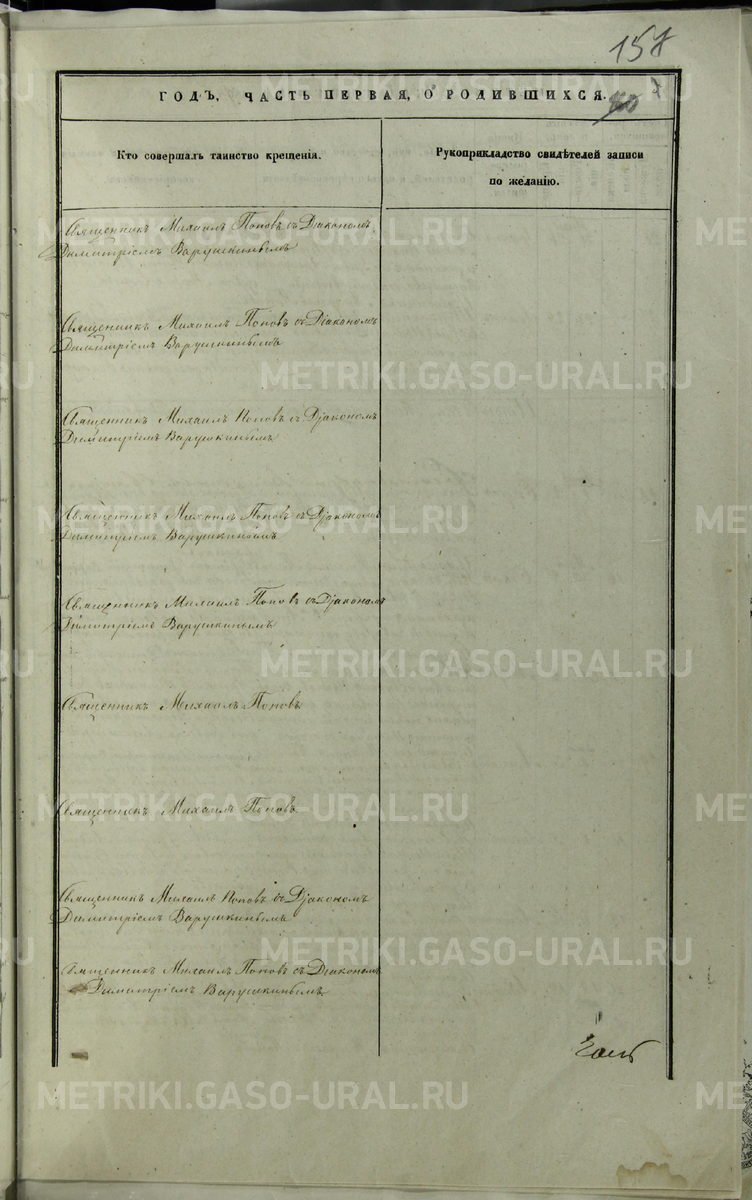 157
ГОДЪ, ЧАСТЬ ПЕРВАЯ, О РОДИВШИХСЯ.
Кто совершалъ таинство крещенія.
Рукоприкладство свидѣтелей записи
по желанію.
Священникъ Михаилъ Поповъ съ Діакономъ
Димитріемъ Варушкинымъ
Священникъ Михаилъ Поповъ съ Діакономъ
Димитріемъ Варушкинымъ
Священникъ Михаилъ Поповъ съ Діакономъ
Димитріемъ Варушкинымъ
Священникъ Михаилъ Поповъ съ Діакономъ
Димитріемъ Варушкинымъ
Священникъ Михаилъ Поповъ съ Діакономъ
Димитріемъ Варушкинымъ
Священникъ Михаилъ Поповъ
Священникъ Михаилъ Поповъ
Священникъ Михаилъ Поповъ съ Діакономъ
Димитріемъ Варушкинымъ
Священникъ Михаилъ Поповъ съ Діакономъ
Димитріемъ Варушкинымъ
METRIKI.GASO-URAL.RU